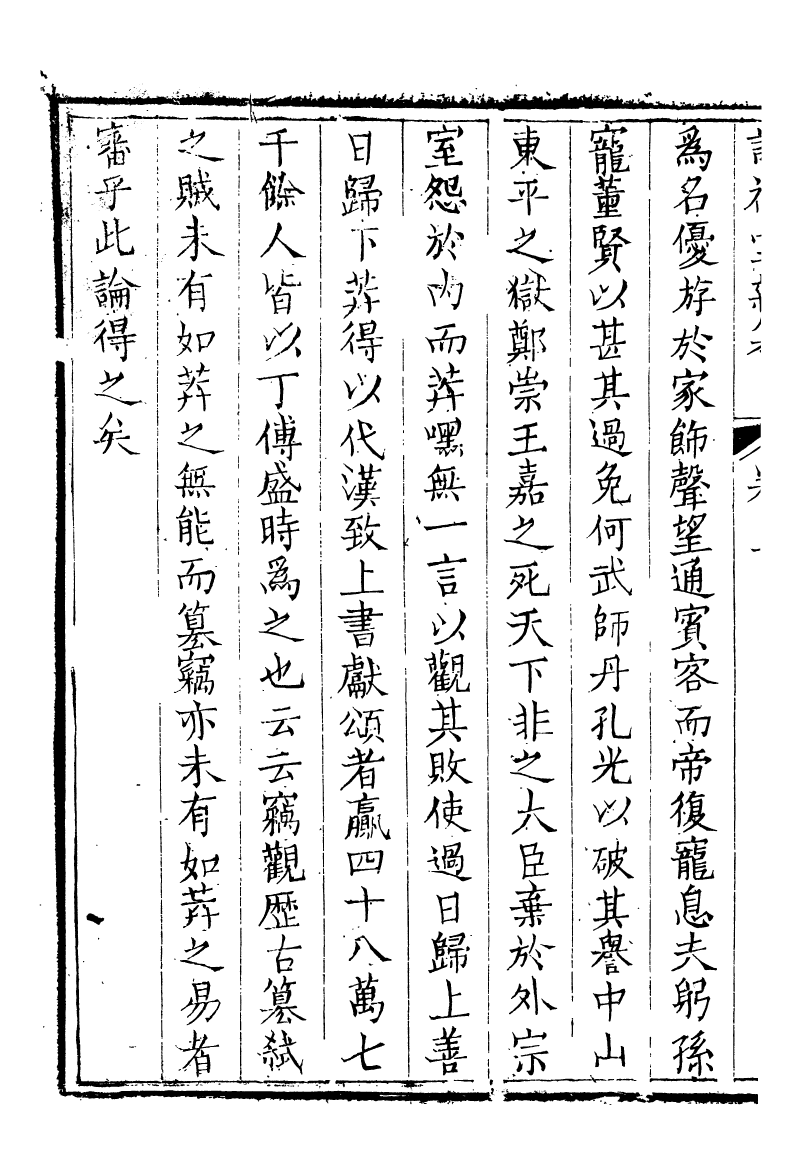 爲名優游於家飾聲望通賓客而帝復寵息夫躬孫
寵董賢以甚其過免何武師丹孔光以破其譽中山
東平之獄鄭崇王嘉之死天下非之大臣棄於外宗
室怨於内而莽嘿無一言以觀其敗使過日歸上善
日歸下莽得以代漢致上書獻頌者贏四十八萬七
千餘人皆以丁傅盛時爲之也云云竊觀歷古篡弑
之賊未有如莽之無能而篡竊亦未有如莽之易者
審乎此論得之矣